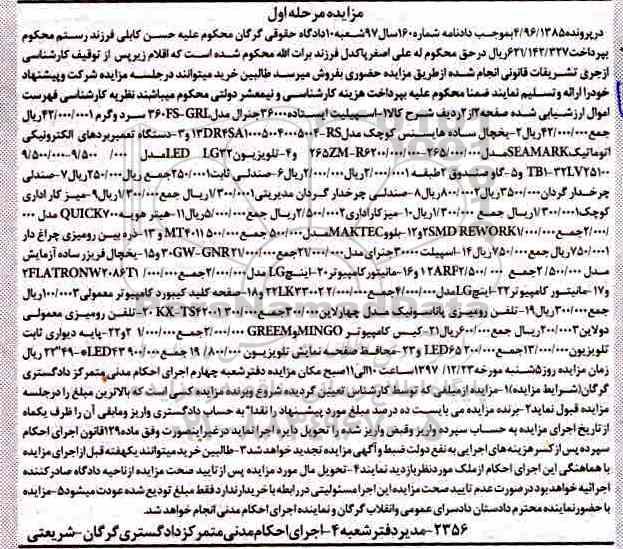 مزایده مرحله اول
در پرونده ۴/۹۶/۱۳۸۵ بموجب دادنامه شماره ۱۶۰ سال ۹۷ شعبه ۱۰ دادگاه حقوقی گرگان محکوم علیه حسن کابلی فرزند رستم محکوم
بپرداخت ۶۲۱/۱۴۲/۳۲۷ ریال در حق محکوم له علی اصغر پاکدل فرزند برات الله محکوم شده است که اقلام زیر پس از توقیف کارشناسی
از جری تشریفات قانونی انجام شده از طریق مزایده حضوری بفروش میرسد طالبین خرید میتوانند در جلسه مزایده شرکت و پیشنهاد
خود را ارائه و تسلیم نمایند ضمنا محکوم علیه بپرداخت هزینه کارشناسی و نیمعشر دولتی محکوم میباشند نظریه کارشناسی فهرست
اموال ارزشیابی شده صفحه ۲ از ۲ ردیف شرح کالا ۱-اسپیلیت ایستاده ۳۶۰۰۰ جنرال مدل ۳۶۰FS-GRL سرد وگرم ۴۲/۰۰۰/۰۰۰۱ ریال
جمع ۴۲/۰۰۰/۰۰۰ ریال ۲-یخچال ساده هایسنس کوچک مدل RS-۱۳DR۴SA۱۰۰۰۵۰۰۴۰۰۵۰۰۴ و ۳-دستگاه تعمیر بردهای الکترونیکی
اتوماتیک SEAMARK مدل ۲۶۵ZM-R۶۲۰۰/۰۰۰/۰۰۰۲۶۵/۰۰۰/۰۰۰ و ۴-تلویزیون LED LG۳۲ مدل ۹/۵۰۰/۰۰۰ ۹/۵۰۰/۰۰۰
TB۱-۳۲LV۲۵۱۰۰ و ۵-گاو صندوق ۲ طبقه ۲/۰۰۰/۰۰۰۱ ریال ۲/۰۰۰/۰۰۰ ریال ۶-صندلی ثابت ۲۵۰/۰۰۰۱ جمع ریال ۲۵۰/۰۰۰ ریال ۷-صندلی
چرخدار گردان ۳۵۰/۰۰۰۰ ریال ۸۰۰/۰۰۰۲ ریال ۸-صندلی چرخدار گردان مدیریتی ۱/۳۰۰/۰۰۰۱ ریال جمع ۱/۳۰۰/۰۰۰ ریال ۹-میز کار اداری
کوچک ۱/۳۰۰/۰۰۰۱ ریال جمع ۱/۳۰۰/۰۰۰ ریال ۱۰-میز کار اداری ۲/۵۰۰/۰۰۰۲ ریال جمع ۵/۰۰۰/۰۰۰ ریال ۱۱-هیتر هویه QUICK۷۰۰ مدل ۰۰۰
/۲/۰۰۰ جمع ۲SMD REWORK۱/۰۰۰/۰۰۰ و ۱۲-بلوور MAKTEC مدل ۵۰۰/۰۰۰ جمع ۵۰۰/۰۰۰ MT۴۰۱۱ و ۱۳-ذره بین رومیزی چراغ دار
۷۵۰/۰۰۰۱ ریال جمع ۷۵۰/۰۰۰ ریال ۱۴-اسپلت ۳۰۰۰۰ جنرای مدل ۲۱/۰۰۰/۰۰۰ جمع ۲۱/۰۰۰/۰۰۰ ۳۰GW-GNR و ۱۵-یخچال فریزر ساده آزمایش
مدل ۲/۵۰۰/۰۰۰ جمع ۲/۵۰۰/۰۰۰ ۱۲ARF و ۱۶-مانیتور کامپیوتر ۲۰-اینچ LG مدل ۲/۰۰۰/۰۰۰ جمع ۲/۰۰۰/۰۰۰ ۲FLATRONW۲۰۸۶T۱
و ۱۷-مانیتور کامپیوتر ۲۲-اینچ LG مدل ۴/۰۰۰/۰۰۰ جمع ۲/۰۰۰/۰۰۰ ۲۲LK۳۳۰۰۲ و ۱۸-صفحه کلید کیبورد کامپیوتر معمولی ۱۰۰/۰۰۰۳ ریال
جمع ۳۰۰/۰۰۰ ریال ۱۹-تلفن رومیزی پاناسونیک مدل چهار لاین ۳۰۰/۰۰۰ جمع ۳۰۰/۰۰۰ KX-TS۴۲۰۰۱ ۲۰-تلفن رومیزی معمولی
دو لاین ۲۰۰/۰۰۰۳ ریال جمع ۶۰۰/۰۰۰ ریال ۲۱-کیس کامپیوتر MINGO و GREEM ۲/۰۰۰/۰۰۰ جمع ۲/۰۰۰/۰۰۰۱ و ۲۲-پایه دیواری ثابت
تلویزیون ۱۳/۰۰۰/۰۰۰ جمع ۲۰۰/۰۰۰ LED۶۵ و ۲۳-محافظ صفحه نمایش تلویزیون ۱۹/۸۰۰/۰۰۰ جمع ۹۰۰/۰۰۰ LED۴۳-۴۹*۲۲ ریال
زمان مزایده روز ۵شنبه مورخه ۱۳۹۷/۱۲/۲۳ ساعت ۱۰ الی ۱۱ صبح مکان مزایده دفتر شعبه چهارم اجرای احکام مدنی متمرکز دادگستری
گرگان (شرایط مزایده) ۱-مزایده از مبلغی که توسط کارشناس تعیین گردیده شروع و برنده مزایده کسی است که بالاترین مبلغ را در جلسه
مزایده قبول نماید ۲-برنده مزایده می بایست ده درصد مبلغ مورد پیشنهاد را نقدا" به حساب دادگستری واریز و مابقی آن را ظرف یکماه
از تاریخ اجرای مزایده به حساب سپرده واریز و قبض واریز شده را تحویل دایره اجرا نماید در غیر اینصورت وفق ماده ۱۲۹ قانون اجرای احکام
سپرده پس از کسر هزینه های اجرایی به نفع دولت ضبط و آگهی مزایده تجدید خواهد شد ۳-طالبین خرید میتوانند یکهفته قبل از اجرای مزایده
با هماهنگی این اجرای احکام از ملک مورد نظر بازدید نمایند ۴-تحویل مال مورد مزایده پس از تایید صحت مزایده از ناحیه دادگاه صادر کننده
اجرائیه خواهد بود در صورت عدم تایید صحت مزایده این اجرا مسئولیتی در رابطه با خریدار ندارد فقط مبلغ تودیع شده عودت میشود ۵-مزایده
با حضور نماینده محترم دادستان دادسرای عمومی و انقلاب گرگان و نماینده اجرای احکام مدنی انجام خواهد شد.
۲۳۵۶-مدیر دفتر شعبه ۴-اجرای احکام مدنی متمرکز دادگستری گرگان-شریعتی